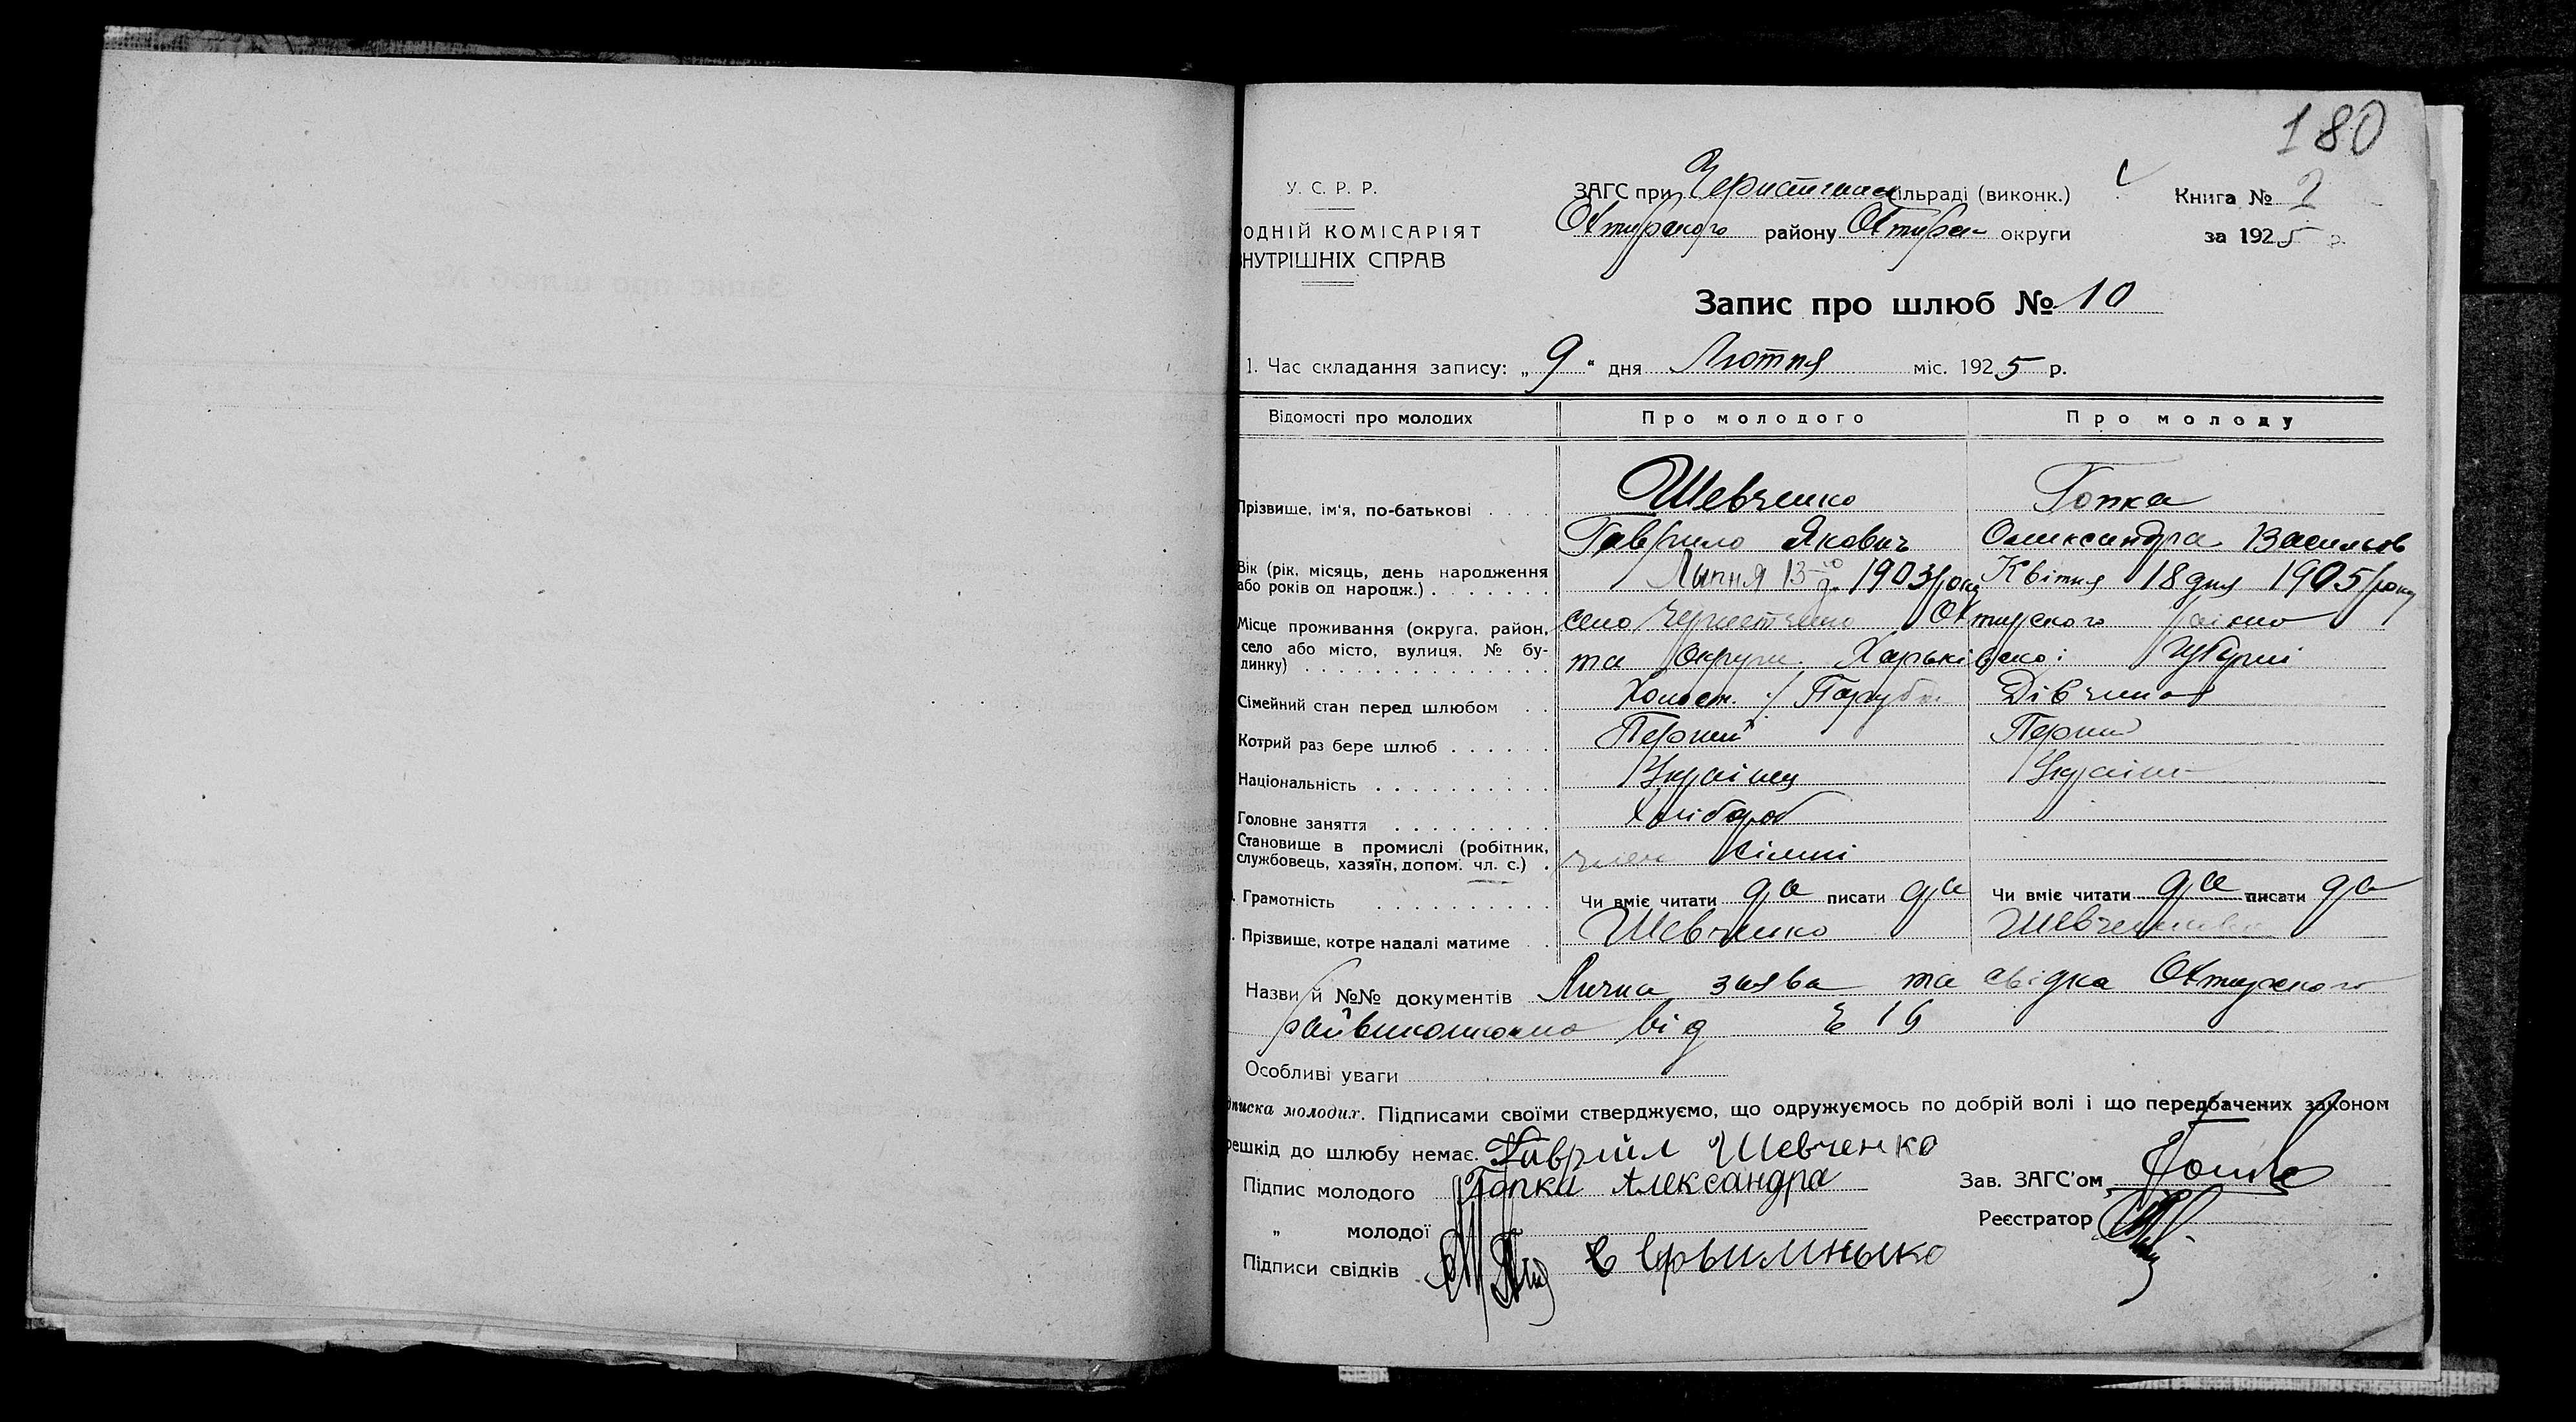 180
У. С. Р. Р.
ОДНІЙ КОМІСАРІЯТ
НУТРІШНІХ СПРАВ
ЗАГС при сільраді (виконк.)
Охтирского району Охтирск округи
Книга № 2
за 1925 р.
Запис про шлюб № 10
1. Час складання запису: „ 9 " дня Лютня міс. 1925 р.
Відомості про молодих Про молодого Про молоду
Прізвище, ім'я, по-батькові Шевченко Гопка
Гаврило Якович Олександра Васильов
Вік (рік, місяць, день народження або років од народж.) Липня 13-го д. 1903 року Квітня 18 дня 1905 року
Місце проживання (округа, район, село або місто, вулиця, № будинку) село Охтирского району
та Округи Харьківскоі Губерні
Сімейний стан перед шлюбом Холост. / Парубок Дівчина
Котрий раз бере шлюб Перший Перши
Національність Украінец Украін
Головне заняття Хлібороб
Становище в промислі (робітник, службовець, хазяїн, допом. чл. с.) член сімьі
Грамотність Чи вміє читати да писати да Чи вміє читати да писати да
Прізвище, котре надалі матиме Шевченко Шевченкова
Назви й №№ документів Лична заява та свідка Охтирского
райвиконкома від
Особливі уваги
писка молодих. Підписами своїми стверджуємо, що одружуємось по добрій волі і що передбачених законом
решкід до шлюбу немає. Гавриїл Шевченко
Підпис молодого Гопка Александра
„ молодої
Підписи свідків
Зав. ЗАГС'ом
Реєстратор